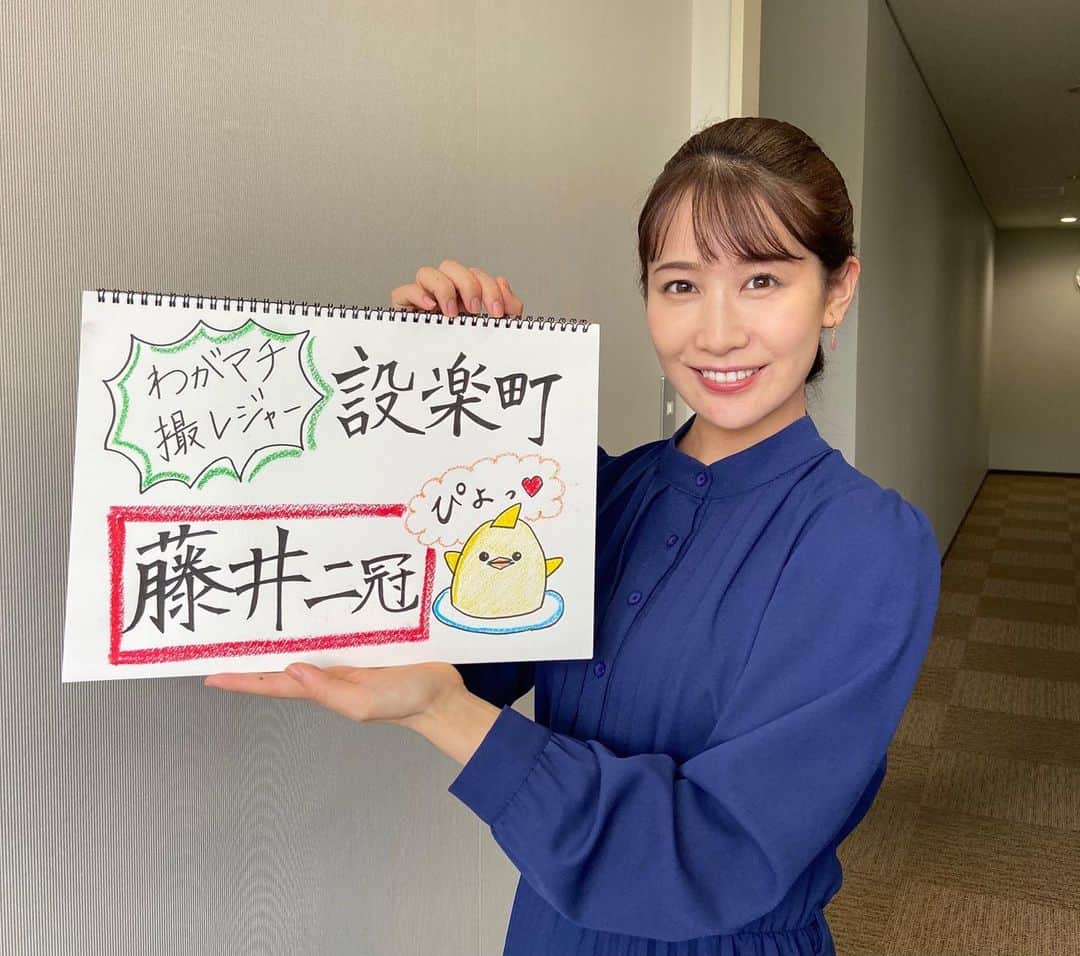 わがマチ
撮レジャー
設楽町
ぴよっ
藤井二冠